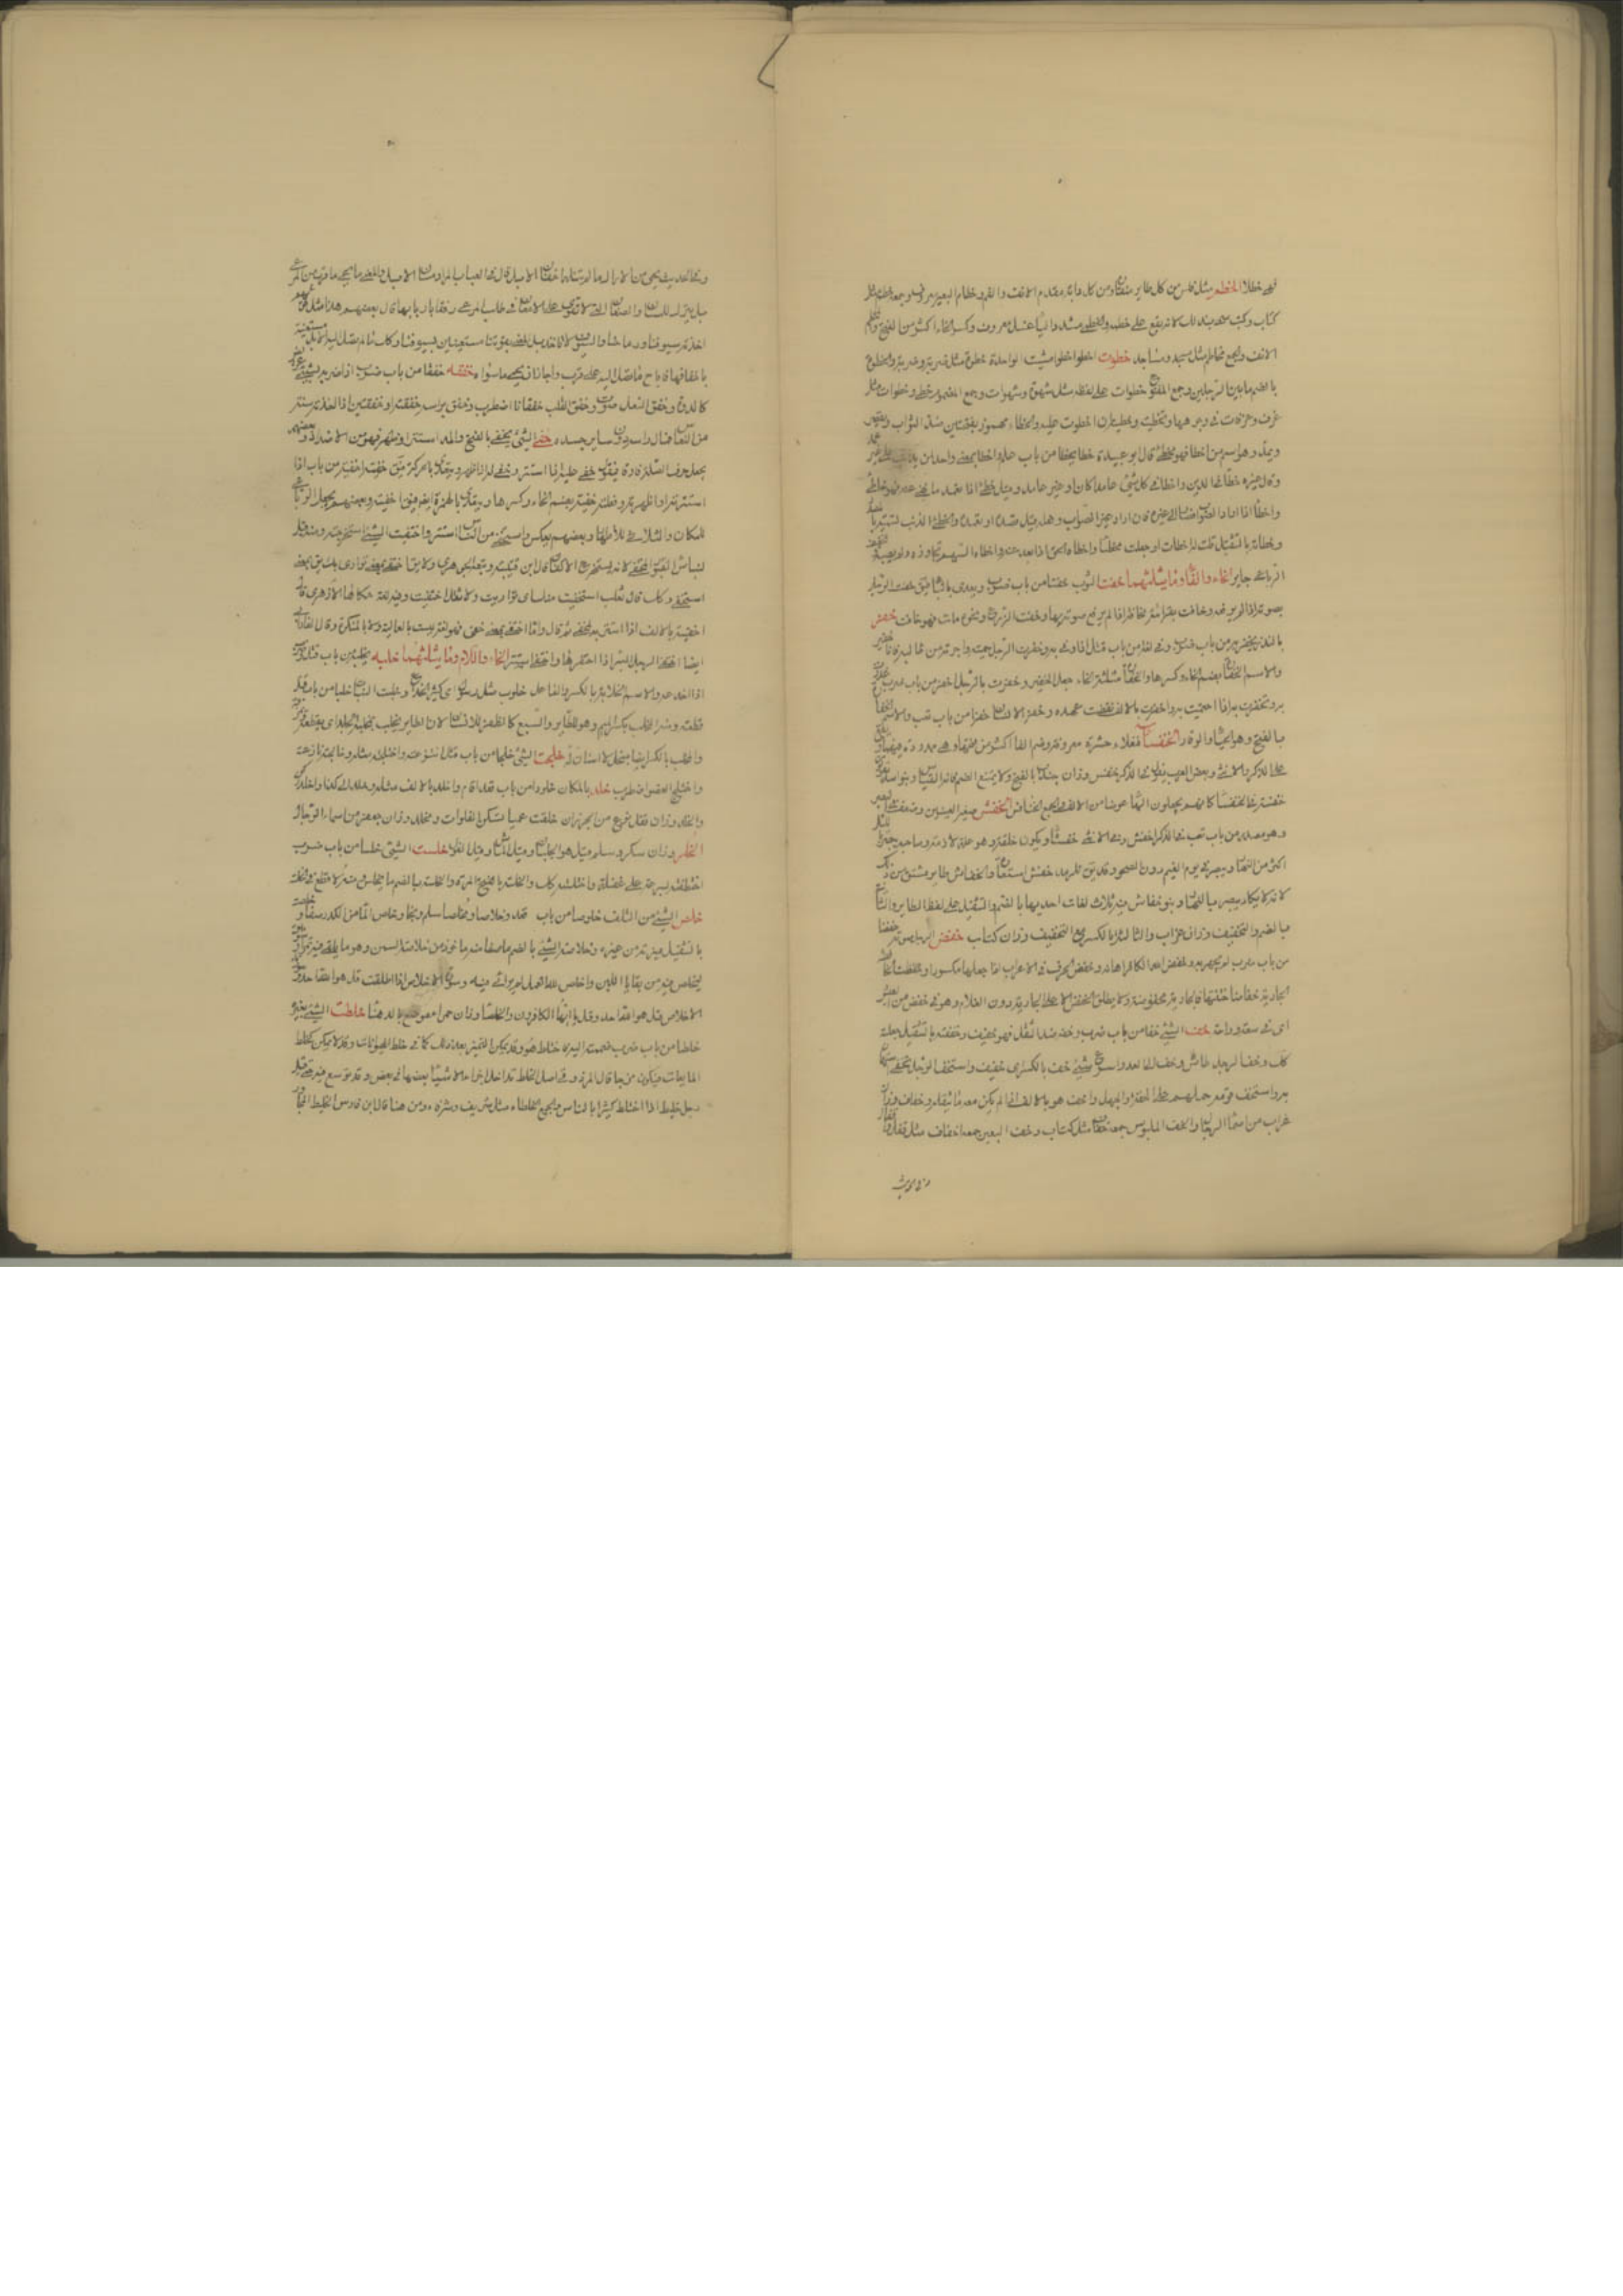 فهي خطلا الخطم مثل فلس من كل طاير منقاره ومن كل دابة مقدم الانف والفم وخطام البعير معروف وجمعه خطم مثل
كتاب وكتب سمي بذلك لانه يقع على خطمه والخطمي مشدد الياء غسل معروف وكسر الخاء اكثر من الفتح
الانف والجمع مخاطم مثل مسجد ومساجد خطوت اخطو خطوا مشيت الواحدة خطوة مثل ضرب وضربة والخطوة
بالضم ما بين الرجلين وجمع المفتوح خطوات على لفظه مثل شهوة وشهوات وجمع المضموم خطى وخطوات مثل
غرف وغرفات في وجوهها وتخطيت وخطيته اذا خطوت عليه والخطاء مهموز بفتحتين ضد الصواب ويقصر
ويمد وهو اسم من اخطا فهو مخطئ قال ابو عبيدة خطا يخطا من باب علم واخطا بمعنى واحد لمن يذنب على غير
وقال غيره خطئ في الدين واخطا في كل شيء عامدا كان او غير عامد وقيل خطئ اذا تعمد ما نهي عنه فهو خاطئ
واخطا اذا اراد الصواب فصار الى غيره فان اراد غير الصواب وفعله قيل قصده او تعمده والخطئ الذنب تسمية
وخطاته بالتثقيل قلت له اخطات او جعلته مخطئا واخطاه الحق اذا بعد عنه واخطاه السهم تجاوزه ولم يصبه
الرباعي جايز الخاء والفاء وما يثلثهما خفت الصوت خفتا من باب ضرب ويعدى بالباء فيقال خفت الرجل
بصوته اذا لم يرفعه وخافت بقراته مخافتة اذا لم يرفع صوته بها وخفت الزرع ونحوه مات فهو خافت خفر
بالعهد يخفر به من باب ضرب وفي لغة من باب قتل اذا وفى به وخفرت الرجل حميته واجرته من طالبه فانا خفير
والاسم الخفارة بضم الخاء وكسرها والخفارة مثلثة الخاء جعل الخفير وخفرت بالرجل اخفر من باب ضرب غدرت
به وتخفرت به اذا احتميت به واخفرته بالالف نقضت عهده وخفر الانسان خفرا من باب تعب والاسم الخفارة
بالفتح وهو الحياء والوقار الخنفساء فنعلاء حشرة معروفة وضم الفاء اكثر من فتحها وهي ممدودة فيهما
على الذكر والانثى وبعض العرب يقول في الذكر خنفس وزان جندب بالفتح ولا يمتنع الضم فانه القياس وبنو اسد
خنفسة في الخنفساء كانهم يجعلون الهاء عوضا من الالف والجمع الخنافس الخفش صغر العينين وضعف في البصر
وهو مصدر من باب تعب فالذكر اخفش والانثى خفشاء ويكون خلقة وهو علة لازمة وصاحبه
اكثر من النهار ويبصر في يوم الغيم دون الصحو وقد يقال للرمد خفش استعارة والخفاش طاير مشتق من ذلك
لانه لا يكاد يبصر بالنهار وبنو خفاش فيه ثلاث لغات احديها بالضم والتثقيل على لفظ الطاير والثانية
بالضم والتخفيف وزان غراب والثالثة بالكسر مع التخفيف وزان كتاب خفض الرجل صوته خفضا
من باب ضرب لم يجهر به وخفض الله الكافر اهانه وخفض الحرف في الاعراب اذا جعله مكسورا وخفضت الخافضة
الجارية خفاضا ختنتها فالجارية مخفوضة ولا يطلق الخفض الا على الجارية دون الغلام وهو في خفض من العيش
اي في سعة وراحة خف الشيء خفا من باب ضرب وخفة ضد الثقل فهو خفيف وخففته بالتثقيل جعلته
كذلك وخف الرجل طاش وخف الى العدو اسرع وشيء خف بالكسر اي خفيف واستخف الرجل بحقي استهان
به واستخف قومه حملهم على الخفة والجهل واخف هو بالالف اذا لم يكن معه ما يثقله وخفاف وزان
غراب من اسماء الرجال والخف الملبوس جمعه خفاف مثل كتاب وخف البعير جمعه اخفاف مثل قفل واقفال
وفي الحديث
وفي الحديث يحمى من الاراك ما لم تنله اخفاف الابل قال في العباب المراد مسان الابل والمعنى ما يحمى ما قرب من المرعى
بل يترك للمسان والضعاف التي لا تقوى على الامعان في طلب المرعى رفقا باربابها قال بعضهم هذا مثل قولهم
اخذته سيوفنا ورماحنا والسيوف لا تاخذ بل المعنى اخذناه بقوتنا مستعينين بسيوفنا وكذلك ما لم تصل اليه الابل مستعينة
باخفافها فاباح ما تصل اليه على قرب واجاز ان يحمى ما سواه خفقه خفقا من باب ضرب اذا ضربه بشيء عريض
كالدرة وخفق النعل صوت وخفق القلب خفقانا اضطرب وخفق براسه خفقة او خفقتين اذا اخذته سنة
من النعاس فمال راسه دون ساير جسده خفي الشيء يخفى بالفتح والمد استتر او ظهر فهو من الاضداد وبعضهم
يجعل حرف الصلة فارقا فيقول خفي عليه اذا استتر وخفي له اذا ظهر ويتعدى بالحركة فيقال خفيته اخفيه من باب
استترته او اظهرته وفعلته خفية بضم الخاء وكسرها ويتعدى بالهمزة ايضا فيقال اخفيته وبعضهم يجعل الرباعي
للكتمان والثلاثي للاظهار وبعضهم يعكس واستخفى من الناس استتر واختفيت الشيء استخرجته ومنه قيل
لنباش القبور المختفي لانه يستخرج الاكفان قال ابن قتيبة وتبعه الجوهري ولا يقال اختفى بمعنى توارى بل يقال بمعنى
استخفى وكذلك قال ثعلب استخفيت منك اي تواريت ولا تقل اختفيت وفيه لغة حكاها الازهري قال
اخفيته بالالف اذا سترته فخفي ثم قال واما اختفى بمعنى خفي فهو لغة ليست بالعالية ولا بالمنكرة وقال الفارابي
ايضا اختفى الرجل البئر اذا احتفرها واختفى استتر الخاء واللام وما يثلثهما خلبه يخلبه من باب قتل وضرب
اذا خدعه والاسم الخلابة بالكسر والفاعل خلوب مثل رسول اي كثير الخداع وخلبت النبات خلبا من باب قتل
قطعته ومنه المخلب بكسر الميم وهو للطاير والسبع كالظفر للانسان لان الطاير يخلب بمخلبه الجلد اي يقطعه ويمزقه
والمخلب بالكسر ايضا منجل لا اسنان له خلجت الشيء خلجا من باب قتل انتزعته واختلجته مثله وخالجته نازعته
واختلج العضو اضطرب خلد بالمكان خلودا من باب قعد اقام واخلد بالالف مثله وخلد الى كذا واخلد ركن
والخلد وزان قفل نوع من الجرذان خلقت عميا تسكن الفلوات ومخلد وزان جعفر من اسماء الرجال
الخلر وزان سكر وسلم قيل هو الجلبان وقيل الماش وقيل الفول خلست الشيء خلسا من باب ضرب
اختطفته بسرعة على غفلة واختلسته كذلك والخلسة بالفتح المرة والخلسة بالضم ما يخلس ومنه لا قطع في الخلسة
خلص الشيء من التلف خلوصا من باب قعد وخلاصا ومخلصا سلم ونجا وخلص الماء من الكدر صفا وخلصته
بالتثقيل ميزته من غيره وخلاصة الشيء بالضم ما صفا منه ماخوذ من خلاصة السمن وهو ما يلقى فيه تمر او سويق
ليخلص به من بقايا اللبن واخلص لله العمل لم يراء فيه وسورة الاخلاص اذا اطلقت قل هو الله احد وسورتا
الاخلاص قل هو الله احد وقل يا ايها الكافرون والخلصاء وزان حمراء موضع بالدهناء خلطت الشيء بغيره
خلطا من باب ضرب ضممته اليه فاختلط هو وقد يمكن التمييز بعد ذلك كما في خلط الحيوانات وقد لا يمكن كخلط
المايعات فيكون مزجا قال المرزوقي اصل الخلط تداخل اجزاء الاشياء بعضها في بعض وقد توسع فيه حتى قيل
رجل خليط اذا اختلط كثيرا بالناس والجمع الخلطاء مثل شريف وشرفاء ومن هنا قال ابن فارس الخليط المجاور